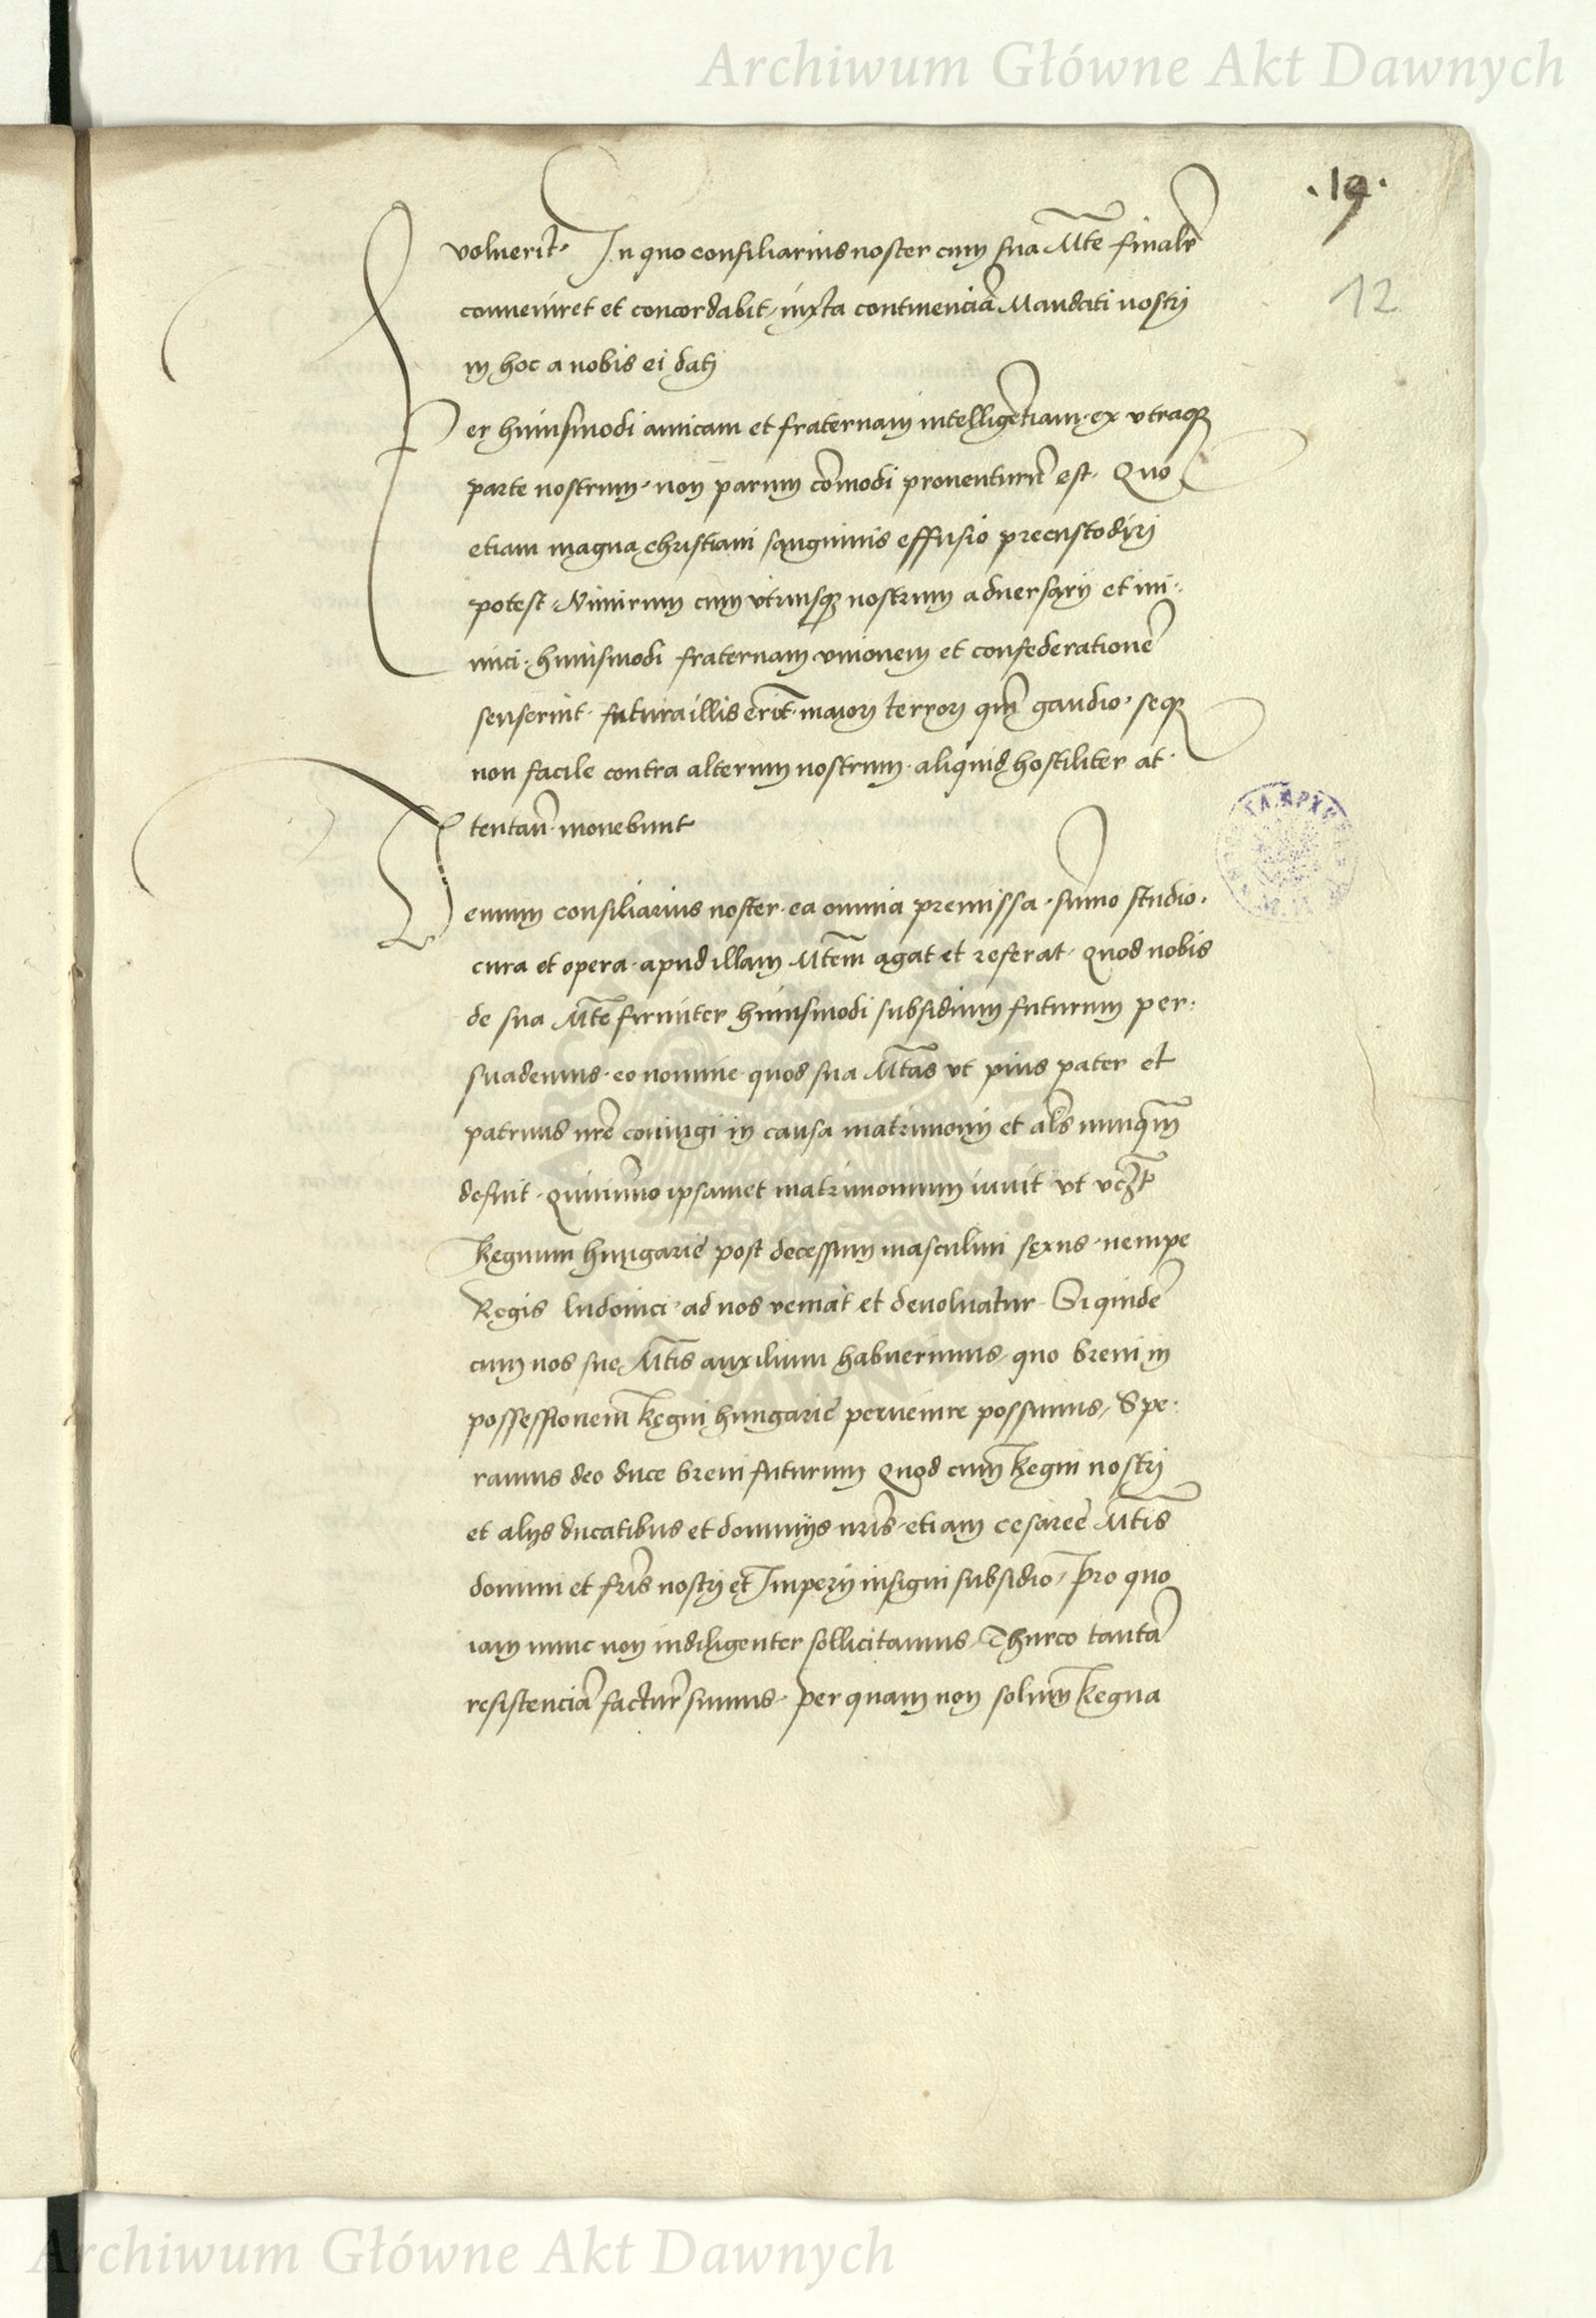 Archiwum Główne Akt Dawnych
.19.
12
voluerit. In quo consiliarius noster cum sua Mte finalr̃
conueniret et concordabit, iuxta continenciã Mandati nostri
in hoc a nobis ei dati
Per huiusmodi amicam et fraternam intelligẽtiam. ex vtraq
parte nostrum. non parum cõmodi prouenturũ est. Quo
etiam magna christiani sanguinis effusio precustodiri
potest. Nimirum cum vtriusq nostrum aduersarij et ini-
mici. huiusmodi fraternam vnionem et confederationẽ
senserint. futura illis erit. maiori terrori qm̃ gaudio. seq
non facile contra alterum nostrum. aliquid hostiliter at-
tentan̄. monebunt
Demum consiliarius noster. ea omnia premissa. sum̃o studio.
cura et opera. apud illam Mtem̃ agat et referat. Quod nobis
de sua Mte firmiter huiusmodi subsidium futurum per-
suademus. eo nomine. quod sua Mtas vt pius pater et
patruus nr̃e coniugi in causa matrimonij et als̃ nunqm̃
defuit. Quinim̃o ipsamet matrimonium iuuit vt vcz̃t
Regnum hungarie post decessum masculini sexus. nempe
Regis ludouici. ad nos veniat et deuoluatur. Siquidẽ
cum nos sue Mtis auxilium habuerimus, quo breui in
possessionem Regni hungarie peruenire possimus, Spe-
ramus deo duce breui futurum Quod cum Regni nostri
et alijs ducatibus et dominijs nr̃is. etiam cesareẽ Mtis
domini et fr̃is nostri et Imperij insigni subsidio, Pro quo
iam nunc non indiligenter sollicitamus, Thurco tantã
resistenciã factur̃ simus. per quam non solum Regna
Archiwum Główne Akt Dawnych